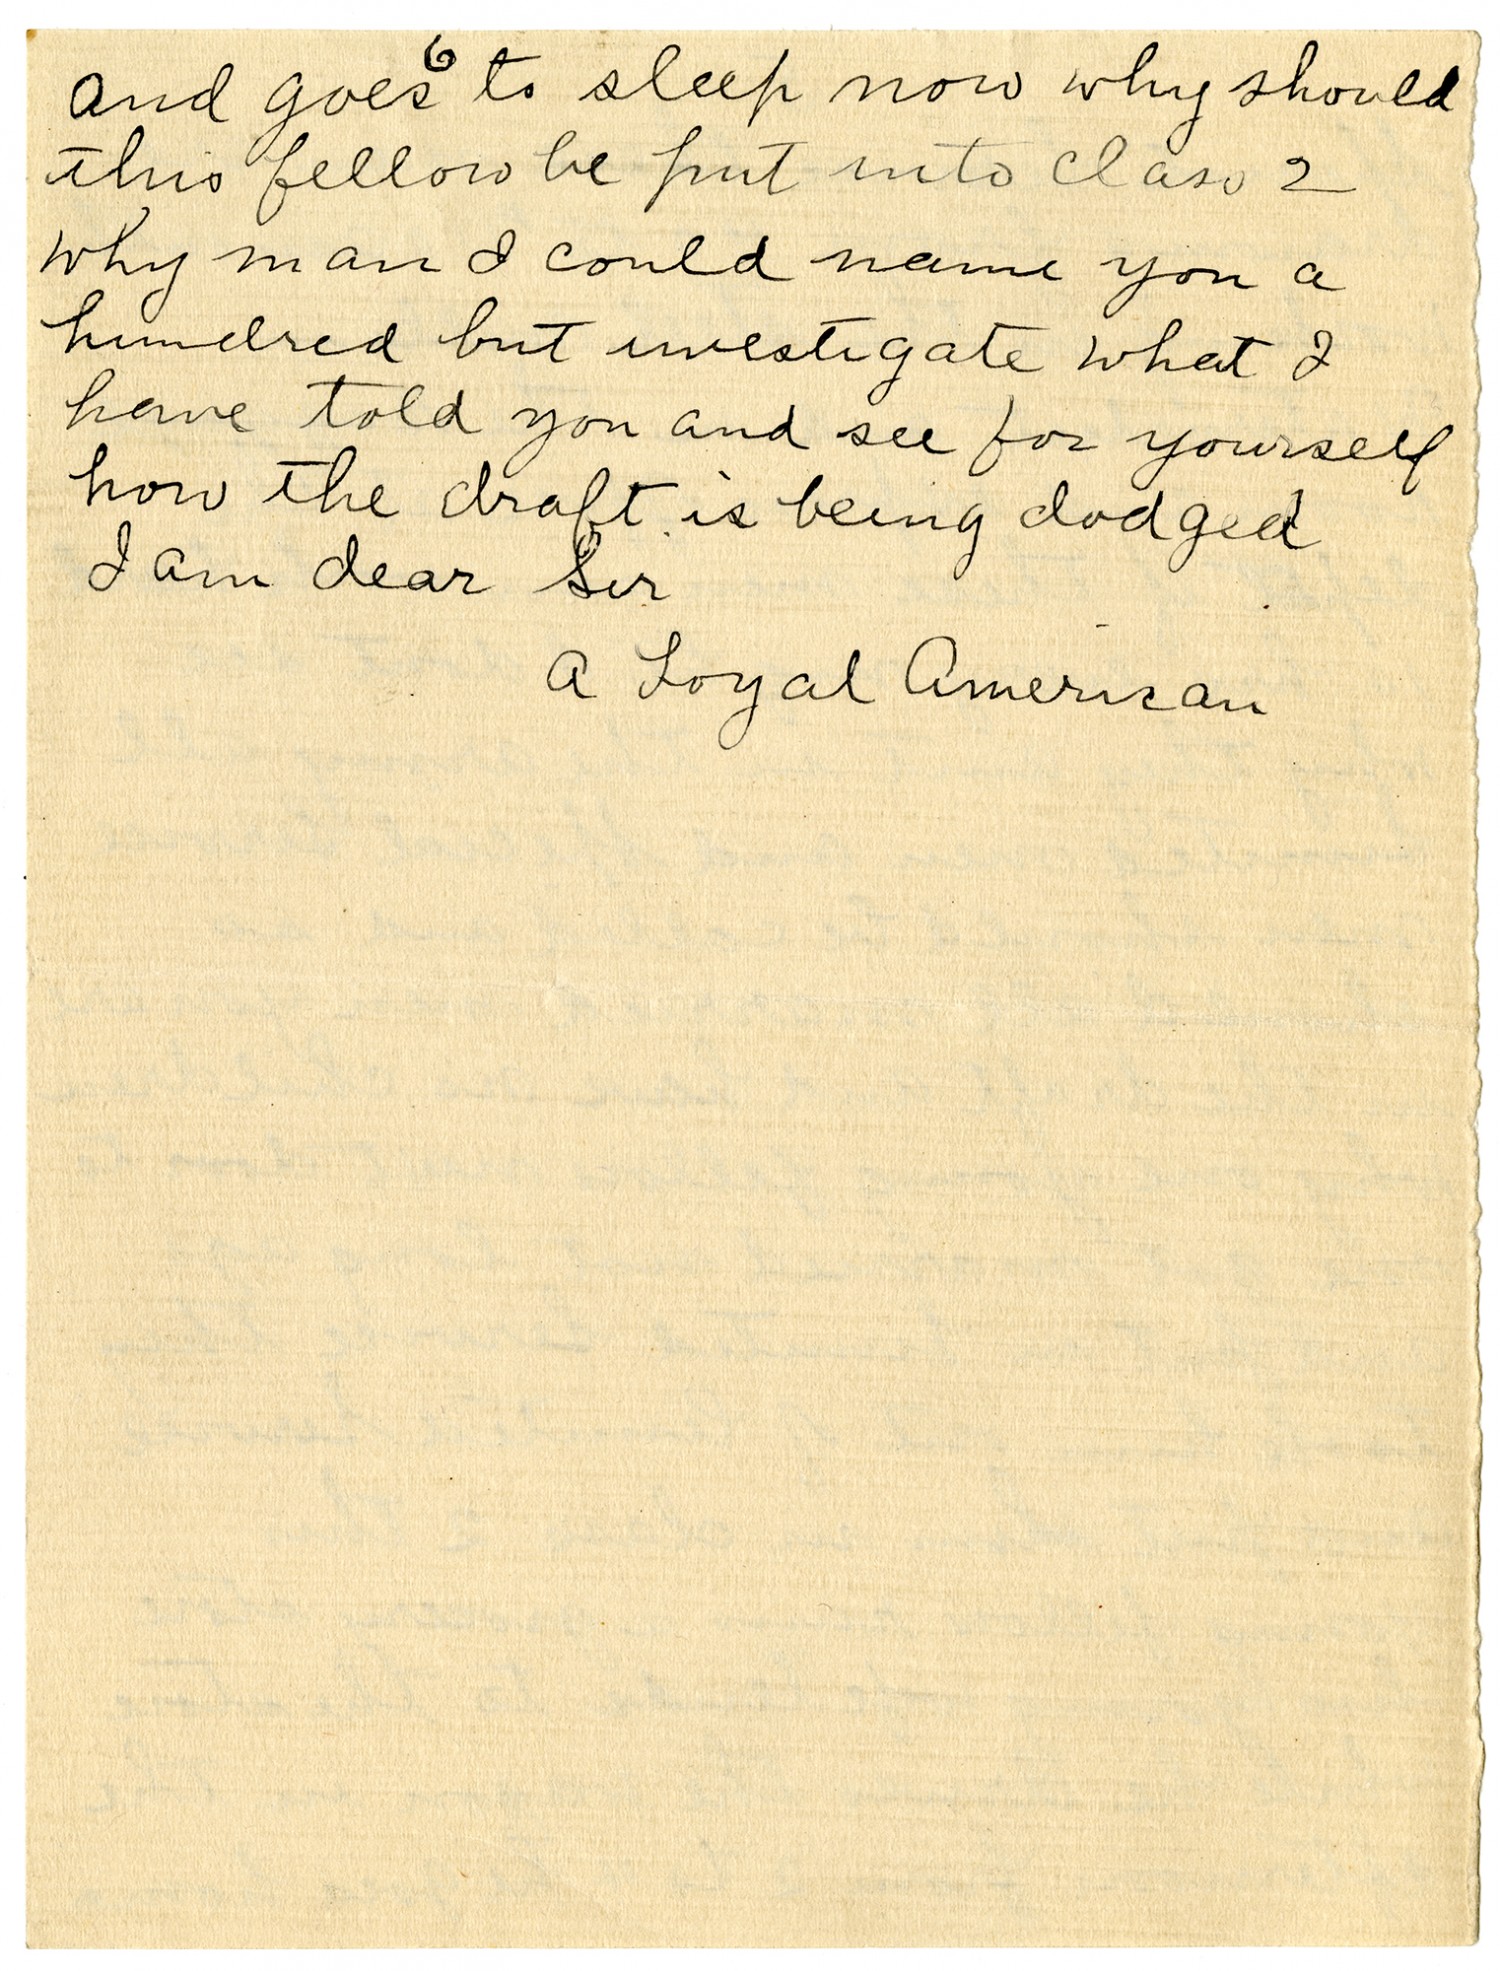 6
and goes to sleep now why should
this fellow be put into class 2
why man I could name you a
hundred but investigate what I
have told you and see for yourself
how the draft is being dodged
I am dear Sir
A Loyal American